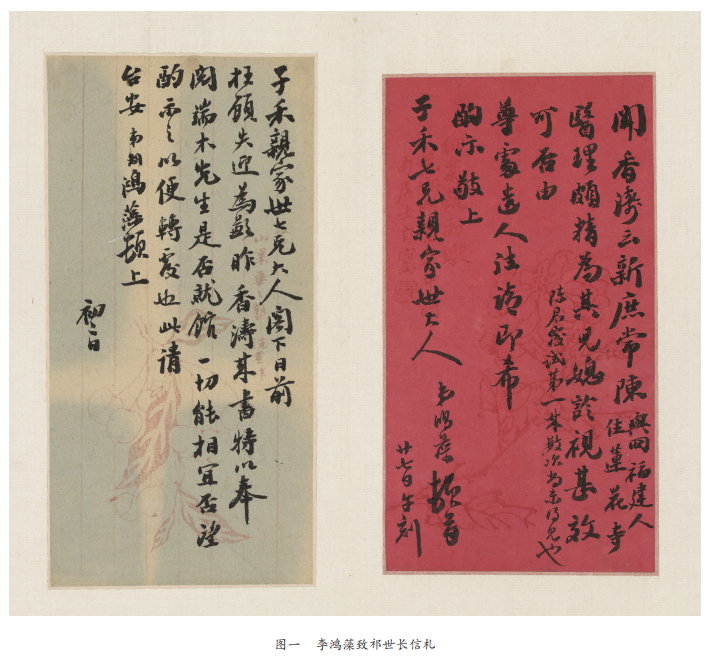 聞香濤云新庶常陳
與冏福建人
住蓮花寺
醫理頗精為其兒媳診視甚效
可否由
陳君覆試第一來數次尚未得見也
尊處遣人往請即希
酌示敬上
子禾七兄親家世大人
弟鴻藻頓首
廿七日午刻
子禾親家世七兄大人閣下日前
枉顧失迎為歉昨香濤來書特以奉
閱端木先生是否就館一切能相宜否望
酌示之以便轉覆也此請
台安弟期鴻藻頓上
初二日
图一 李鸿藻致祁世长信札